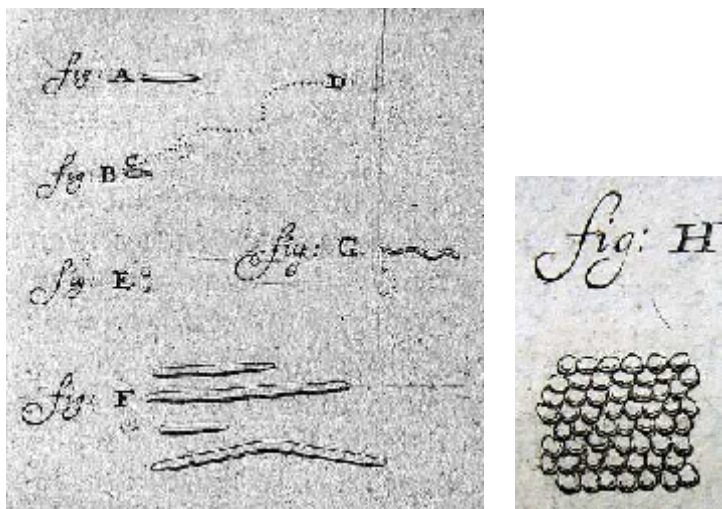 fig: A
D
fig: B C
fig: G.
fig: E
fig: F
fig: H